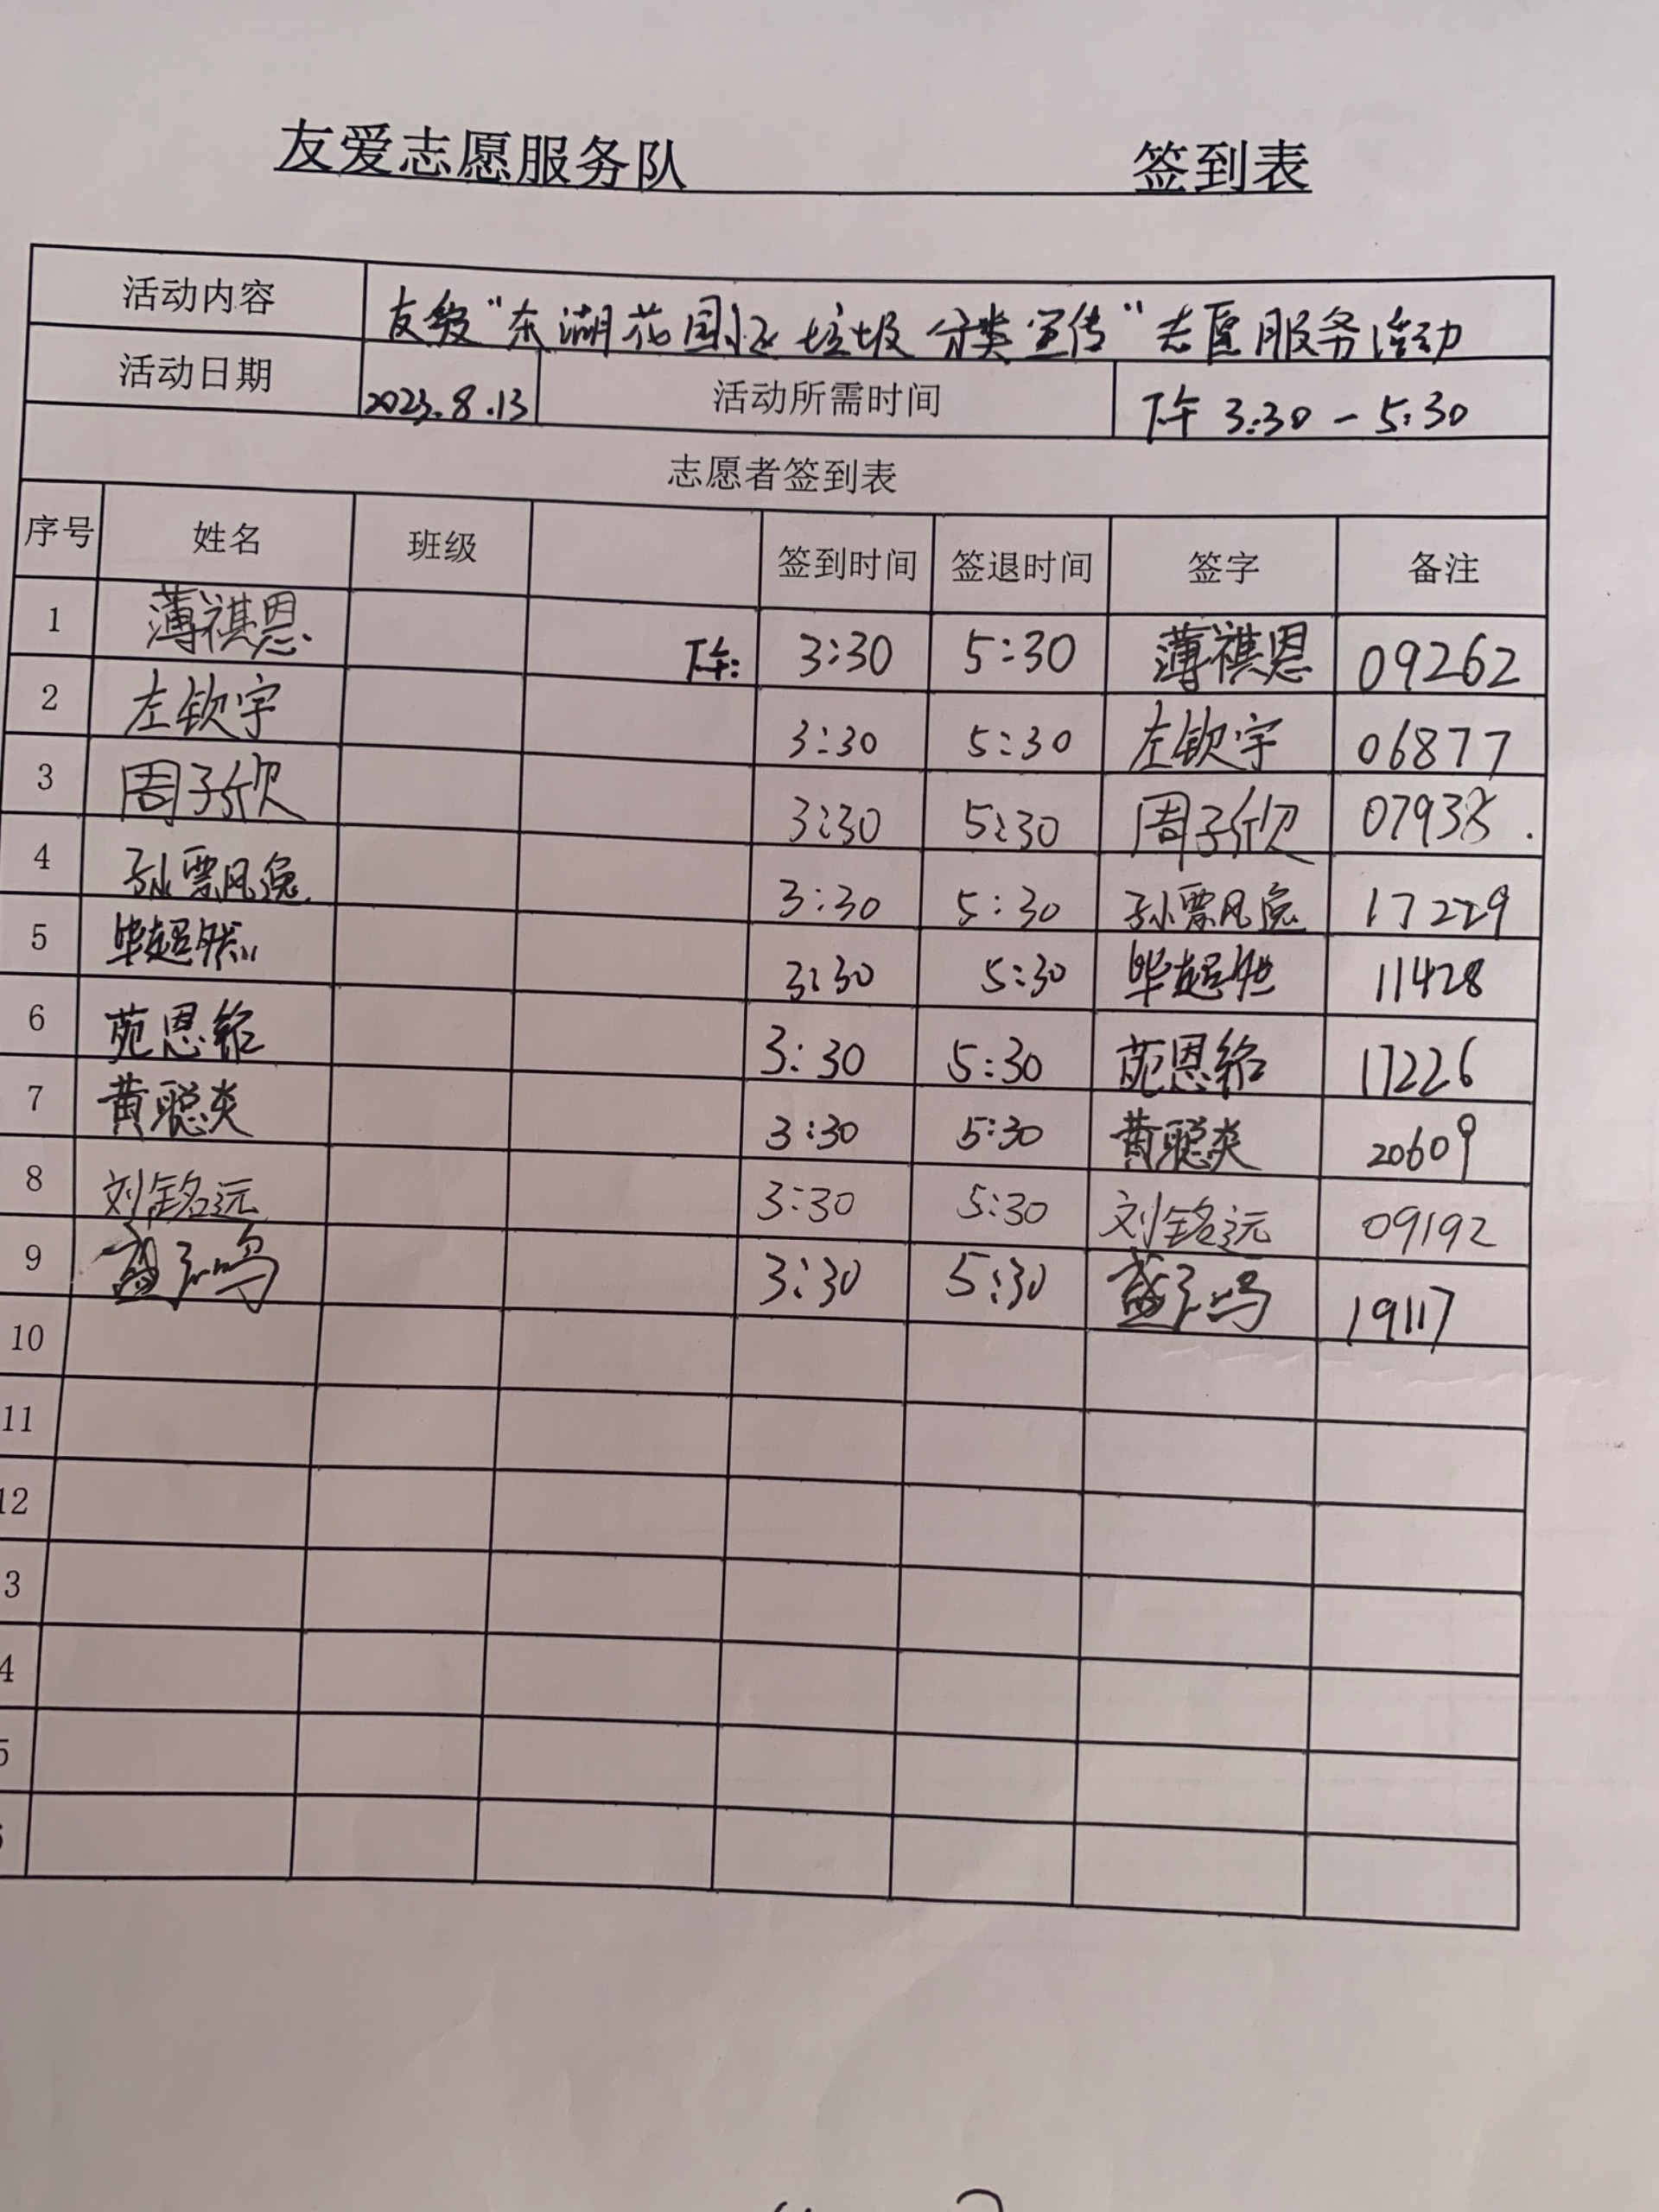 友爱志愿服务队 签到表
活动内容 友爱"东湖花园小区垃圾分类宣传"志愿服务活动
活动日期 2023.8.13 活动所需时间 下午 3:30-5:30
志愿者签到表
序号 姓名 班级 签到时间 签退时间 签字 备注
1 薄祺恩 下午: 3:30 5:30 薄祺恩 09262
2 左钦宇 3:30 5:30 左钦宇 06877
3 周子欣 3:30 5:30 周子欣 07938
4 孙票风逸 3:30 5:30 孙票风逸 17229
5 毕超然 3:30 5:30 毕超然 11428
6 苑恩绍 3:30 5:30 苑恩绍 17226
7 黄聪炎 3:30 5:30 黄聪炎 20609
8 刘铭远 3:30 5:30 刘铭远 09192
9 3:30 5:30 19117
10
11
12
3
4
5